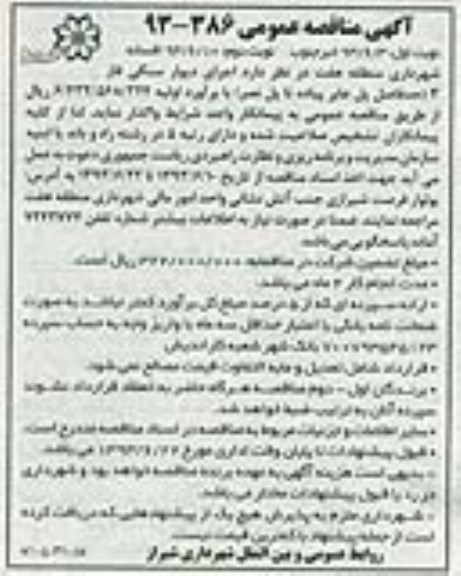 آگهی مناقصه عمومی ۳۸۶-۹۳
نوبت اول: ۹۳/۹/۳ خبر جنوب نوبت دوم: ۹۳/۹/۱۰ افسانه
شهرداری منطقه هفت در نظر دارد اجرای دیوار سنگی فاز
۳ (حدفاصل پل عابر پیاده تا پل نصر) با برآورد اولیه ریال
از طریق مناقصه عمومی به پیمانکار واجد شرایط واگذار نماید. لذا از کلیه
پیمانکاران تشخیص صلاحیت شده و دارای رتبه ۵ در رشته راه و باند یا ابنیه
سازمان مدیریت و برنامه ریزی و نظارت راهبردی ریاست جمهوری دعوت به عمل
می آید جهت اخذ اسناد مناقصه از تاریخ تا به آدرس:
بولوار فرصت شیرازی جنب آتش نشانی واحد امور مالی شهرداری منطقه هفت
مراجعه نمایند. ضمنا در صورت نیاز به اطلاعات بیشتر شماره تلفن
آماده پاسخگویی می باشد.
• مبلغ تضمین شرکت در مناقصه: ریال است.
• مدت انجام کار ۳ ماه می باشد.
• ارائه سپرده ای که از ۵ درصد مبلغ کل برآورد کمتر نباشد به صورت
ضمانت نامه بانکی با اعتبار حداقل سه ماه یا واریز وجه به حساب سپرده
بانک شهر شعبه کاراندیش
• قرارداد شامل تعدیل و مابه التفاوت قیمت مصالح نمی شود.
• برندگان اول - دوم مناقصه هرگاه حاضر به انعقاد قرارداد نشوند
سپرده آنان به ترتیب ضبط خواهد شد.
• سایر اطلاعات و جزئیات مربوط به مناقصه در اسناد مناقصه مندرج است.
• قبول پیشنهادات تا پایان وقت اداری مورخ می باشد.
- بدیهی است هزینه آگهی به عهده برنده مناقصه خواهد بود و شهرداری
در رد یا قبول پیشنهادات مختار می باشد.
- شهرداری ملزم به پذیرش هیچ یک از پیشنهادهایی که دریافت کرده
است از جمله پیشنهاد با کمترین قیمت نیست.
روابط عمومی و بین الملل شهرداری شیراز